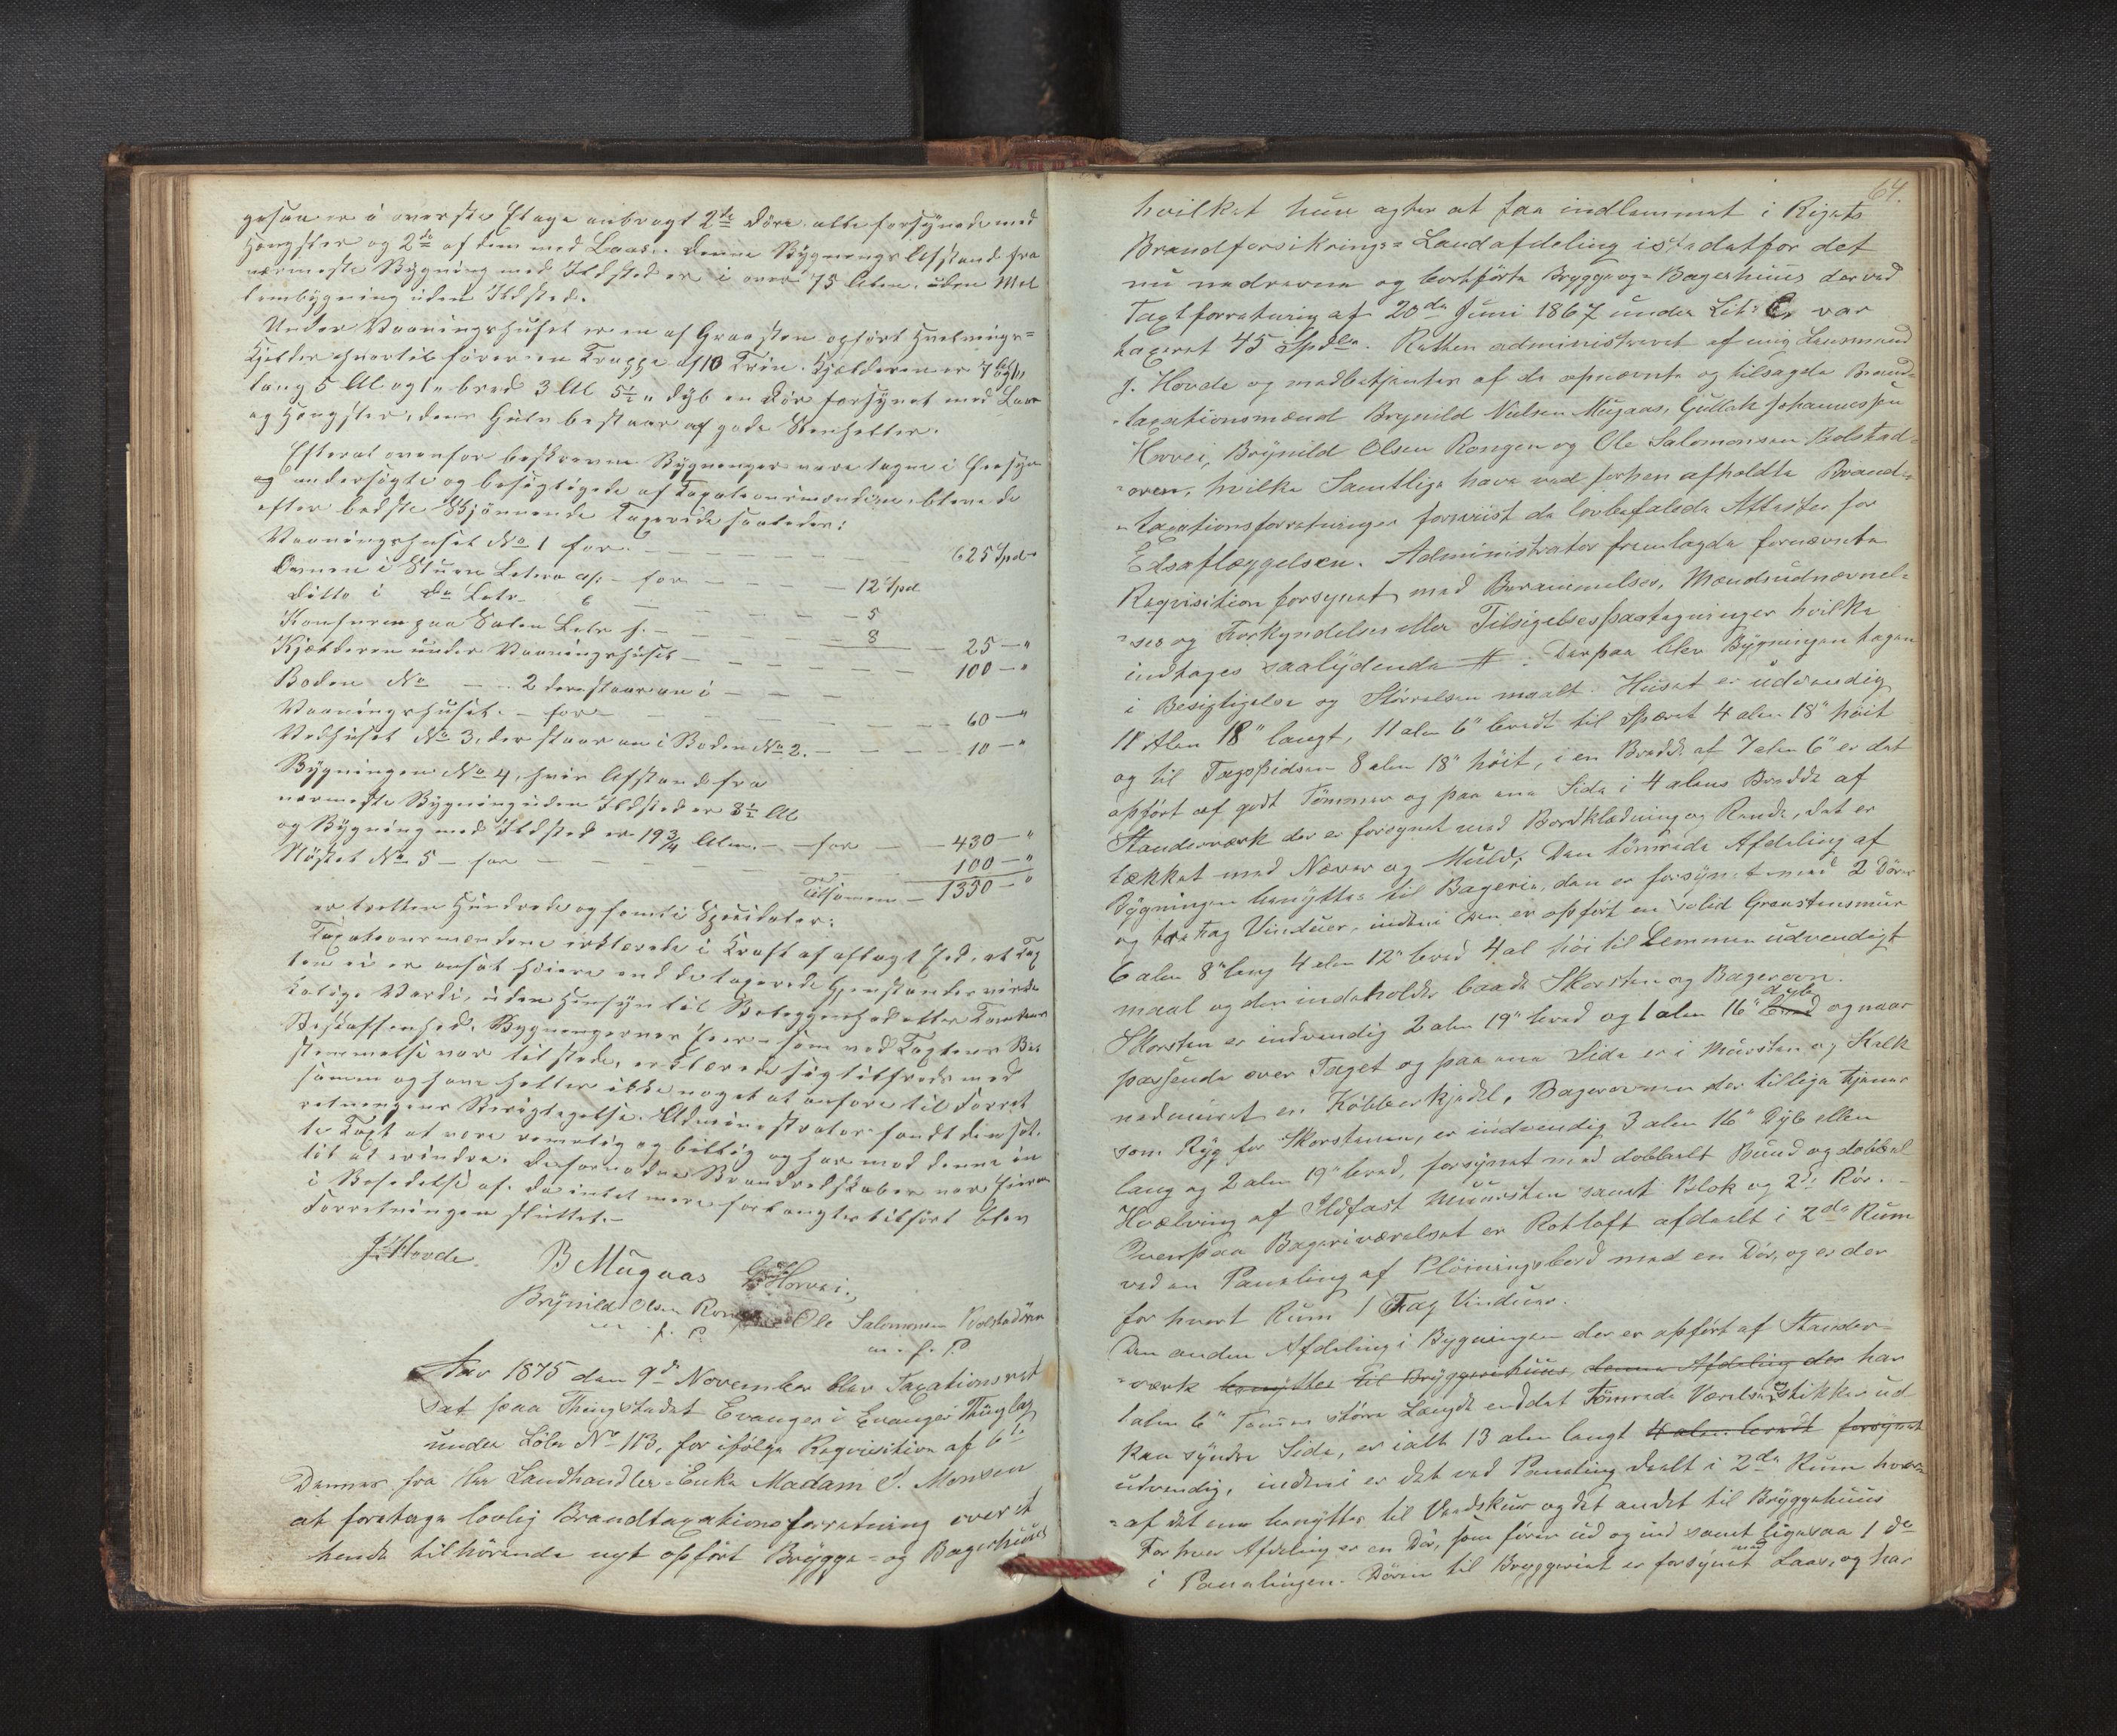 gesaa er i øverste Etage anbragt 2de Døre alle forsynede med
Hengsler og 2de af dem med Laas. Denne Bygnings Afstand fra
nærmeste Bygning med Ildsted er i over 75 Alen, uden Mel
lembygning uden Ildsted.
Under Vaaningshuset er en af Graasten opført Hvælvings=
Kjelder hvortil fører en Trappe af 10 Trin. Kjælderen er 7
lang 5 Al og bred 3 Al 5½ " dyb en Dør forsynet med Laas
og Hengsler, dens Gulv bestaar af gode Stenheller.
Efterat ovenfor beskrevne Bygninger vare tagne i Øiesyn
og undersøgte og besigtigede af Taxationsmændene, bleve de
efter bedste Skjønnende Taxerede saaledes:
Vaaningshuset No 1 for 625 Spd
Ovnen i Stuen Litra a/: - for 12 Spd
Ditto i Do Litr. 6 5
Komfuren paa Salen Litr f. 8 25 — "
Kjælderen under Vaaningshuset 100 — "
Boden No 2 der staar an i
Vaaningshuset. - for 60 — "
Vedhuset No 3, der staar an i Boden No 2. 10 — "
Bygningen No 4, hvis Afstand fra
nærmeste Bygning uden Ildsted er 8½ Al
og Bygning med Ildsted er 19¾ Alen. - for 430 — "
Nøstet No 5 - for 100 — "
Tilsamen — 1350 — "
er tretten Hundrede og femti Specidaler:
Taxationsmændene erklærede i Kraft af aflagt Ed, at Tax
ten ei er ansat høiere end de taxerede Gjenstandes virke
kelige Værdi, uden Hensyn til Beliggenhed eller
Beskaffenhed. Bygningernes Eier - som ved Taxtens Be
stemmelse var tilstede, erklærede sig tilfreds med
samme og have heller ikke noget at anføre til Forret
retningens Berigtigelse. Administrator fandt den sat
te Taxt at være rimelig og billig og har mod denne in
tet at erindre. De fornødne Brandredskaber var Eieren
i Besiddelse af. Da intet mere forlangtes tilført blev
Forretningen sluttet.-
J. Hovde. B Mugaas G. Horvei.
Brynild Olsen Ronge Ole Salomonsen Bolstadøren
m. f. P.
m. f. P.
Aar 1875 den 9de November blev Taxationsret
sat paa Thingstedet Evanger i Evanger Thinglag
under Løbe No 113, for ifølge Reqvisition af 6te
Dennes fra Landhandler Enke Madam S. Monsen
at foretage lovlig Brandtaxationsforretning over et
hende tilhørende nyt opført Brygge= og Bagerhuus
64.
hvilket hun agter at faa indlemmet i Rigets
Brandforsikrings= Landafdeling istedetfor det
nu nedrevne og bortførte Brygge og= Bagerhuus der ved
Taxtforretning af 20de Juni 1867 under Lit: C, var
taxeret 45 Spdlr. Retten administreret af mig Lensmand
J. Hovde og medbetjenter af de opnævnte og tilsagde Brand=
"taxationsmænd Brynild Nielsen Mugaas, Gullak Johannessen
Horvei, Brynild Olsen Rongen og Ole Salomonsen Bolstad=
"øren, hvilke Samtlige have ved forhen afholdte Brand=
"taxationsforretninger foreviist de lovbefalede Attester for
Edsaflæggelsen. Administrator fremlagde fornævnte
Reqvisition forsynet med Berammelse, Mændsudnævnel=
"ses og Forkyndelses eller Tilsigelsespaategninger hvilke
indtages saalydende #: Derpaa blev Bygningen tagen
i Besigtigelse og Størrelsen maalt. Huset er udvendig
18 Alen 18" langt, 11 alen 6" bredt til Spæret 4 alen 18" høit
og til Tagspidsen 8 alen 18" høit, i en Bredde af 7 alen 6" er det
opført af godt Tømmer og paa ene Side i 4 alens Bredde af
Standerværk der er forsynet med Bordklædning og Rende, det er
tækket med Næver og Muld; Den tømrede Afdeling af
Bygningen benyttes til Bageri, den er forsynet med 2 Døre
og tre Fag Vinduer, indeni den er opført en solid Graastensmur
6 alen 8" lang 4 alen 12" bred 4 al høi til Lemmen udvendigt
maal og den indeholder baade Skorsten og Bagerovn.
Skorsten er indvendig 2 alen 19" bred og 1 alen 16" bred dyb og naar
passende over Taget og paa ene Side er i Mursten og Kalk
nedmuret en Kobberkjedel. Bagerovnen der tillige tjener
som Ryg for Skorstenen, er indvendig 3 alen 16" Dyb eller
lang og 2 alen 19" bred, forsynet med dobbelt Bund og dobbel
Hvælving af Ildfast Muursten samt Blok og 2de Rør.
Ovenpaa Bageriværelset er Rotloft afdeelt i 2de Rum
ved en Paneling af Pløiningsbord med en Dør, og er der
for hvert Rum 1 Fag Vinduer.
Den anden Afdeling i Bygningen der er opført af Stander=
"værk benyttes til Bryggerihuus, denne Afdeling der har
1 alen 6" Tommer større Længde end det Tømrede Værelse og stikker ud
paa søndre Side, er ialt 13 alen langt 4 alen bredt forsynet
udvendig, indeni er det ved Paneling deelt i 2de Rum hvor=
"af det ene benyttes til Vedskur og det andet til Bryggehuus
For hver Afdeling er en Dør, som fører ud og ind samt ligesaa 1 do
i Panelingen. Døren til Bryggeriet er forsynet med Laas, og har